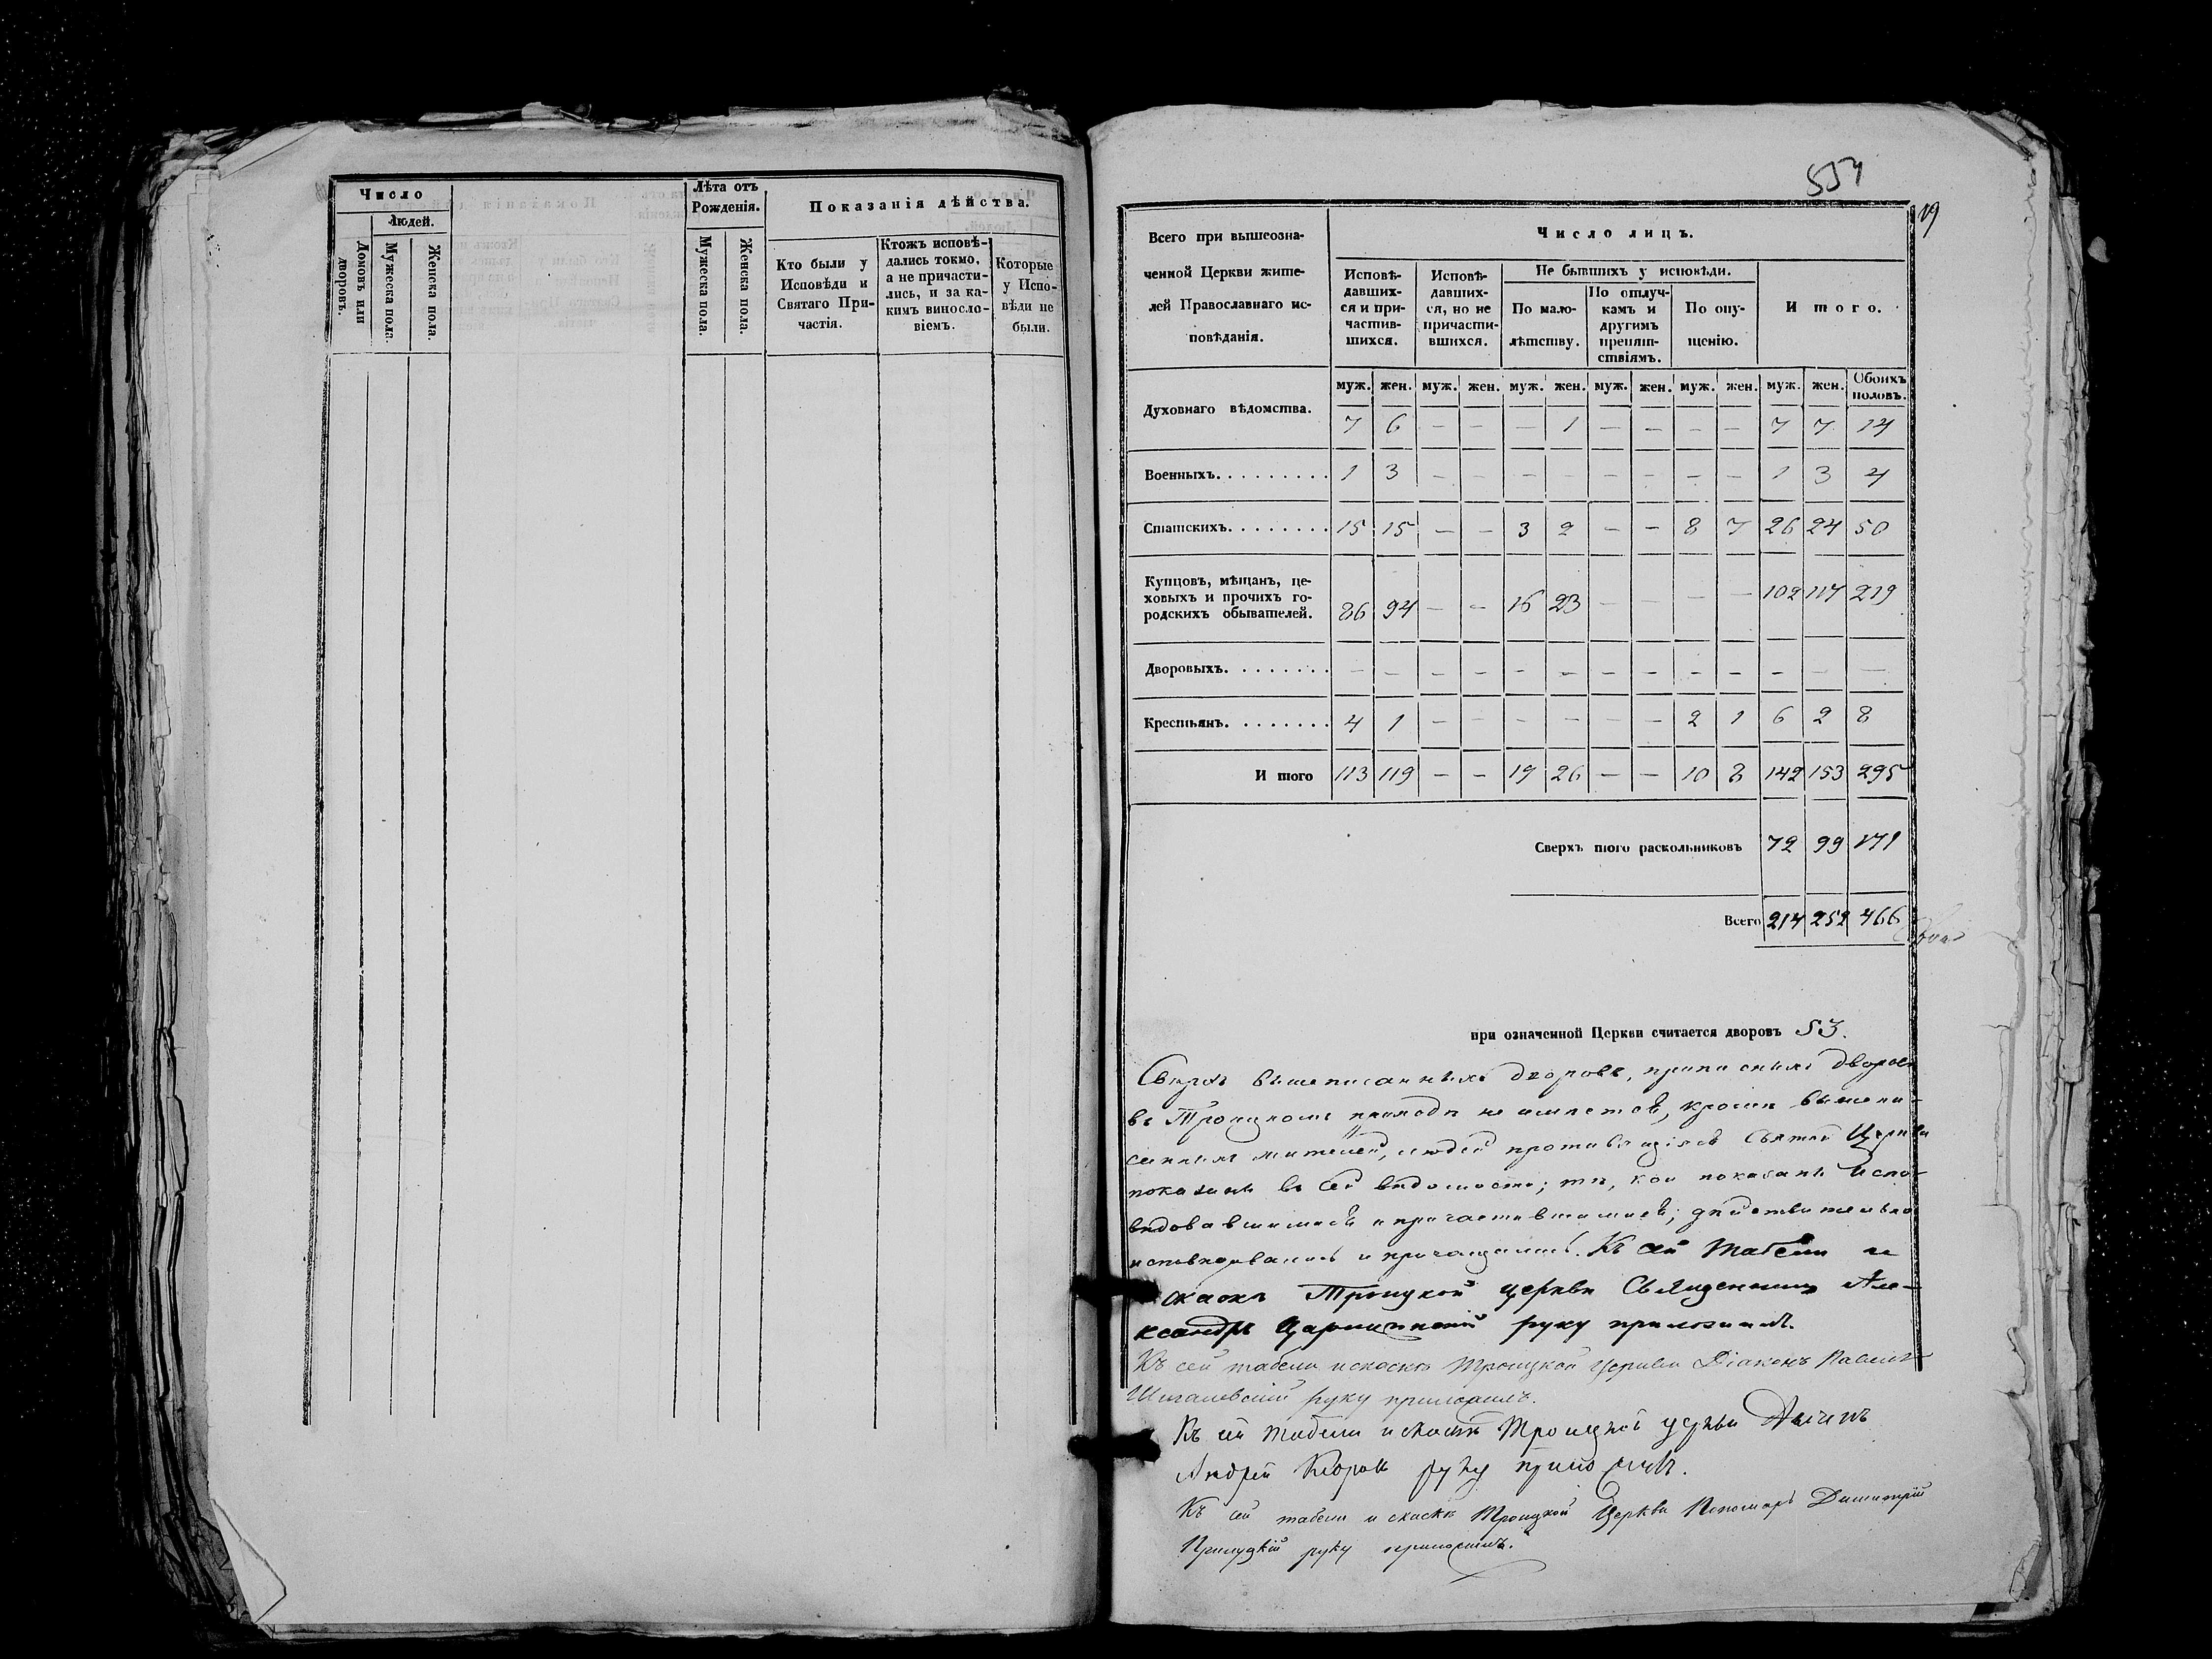 Число
Людей.
Домовъ или дворовъ.
Мужеска пола.
Женска пола.
Лѣта отъ Рожденія.
Мужеска пола.
Женска пола.
Показанія дѣйства.
Кто были у Исповѣди и Святаго При-
частія.
Ктожъ исповѣ-
дались токмо,
а не причасти-
лись, и за ка-
кимъ винослo-
віемъ.
Которые
у Испо-
вѣди не
были.
554
19
Всего при вышеозна-
ченной Церкви жите-
лей Православнаго ис-
повѣданія.
Число лицъ.
Исповѣ-
давших-
ся и при-
частив-
шихся.
Исповѣ-
давших-
ся, но не
причасти-
вшихся.
Не бывшихъ у исповѣди.
По мало-
лѣтству.
По отлуч-
камъ и
другимъ
препят-
ствіямъ.
По опу-
щенію.
И того.
муж. жен. муж. жен. муж. жен. муж. жен. муж. жен. муж. жен. Обоихъ половъ.
Духовнаго вѣдомства. 7 6 — — — 1 — — — — 7 7 14
Военныхъ. 1 3 — — — — — — — — 1 3 4
Статскихъ. 15 15 — — 3 2 — — 8 7 26 24 50
Купцовъ, мѣщанъ, це-
ховыхъ и прочихъ го-
родскихъ обывателей. 86 94 — — 16 23 — — — — 102 117 219
Дворовыхъ. — — — — — — — — — — — — —
Крестьянъ. 4 1 — — — — — — 2 1 6 2 8
И того 113 119 — — 19 26 — — 10 8 142 153 295
Сверхъ того раскольниковъ 72 99 171
Всего 214 252 466
при означенной Церкви считается дворовъ 53.
Сверхъ вышеписанныхъ дворовъ, приписныхъ дворовъ
въ Троицкомъ приходѣ не имѣется, кромѣ вышепи-
санныхъ жителей, людей противящихся Святой Церкви
показанъ въ сей вѣдомости; тѣ, кои показаны испо-
вѣдовавшимися и причастившимися, дѣйствительно
исповѣдывались и причащались. Къ сей табели и
скаскѣ Троицкой церкви Священникъ Але-
ксандръ руку приложилъ.
Къ сей табели и скаскѣ Троицкой церкви Діаконъ Павелъ
руку приложилъ.
Къ сей табели и скаскѣ Троицкой церкви Дьячекъ
Андрей руку приложилъ.
Къ сей табели и скаскѣ Троицкой Церкви Пономарь Димитрій
Прилуцкій руку приложилъ.